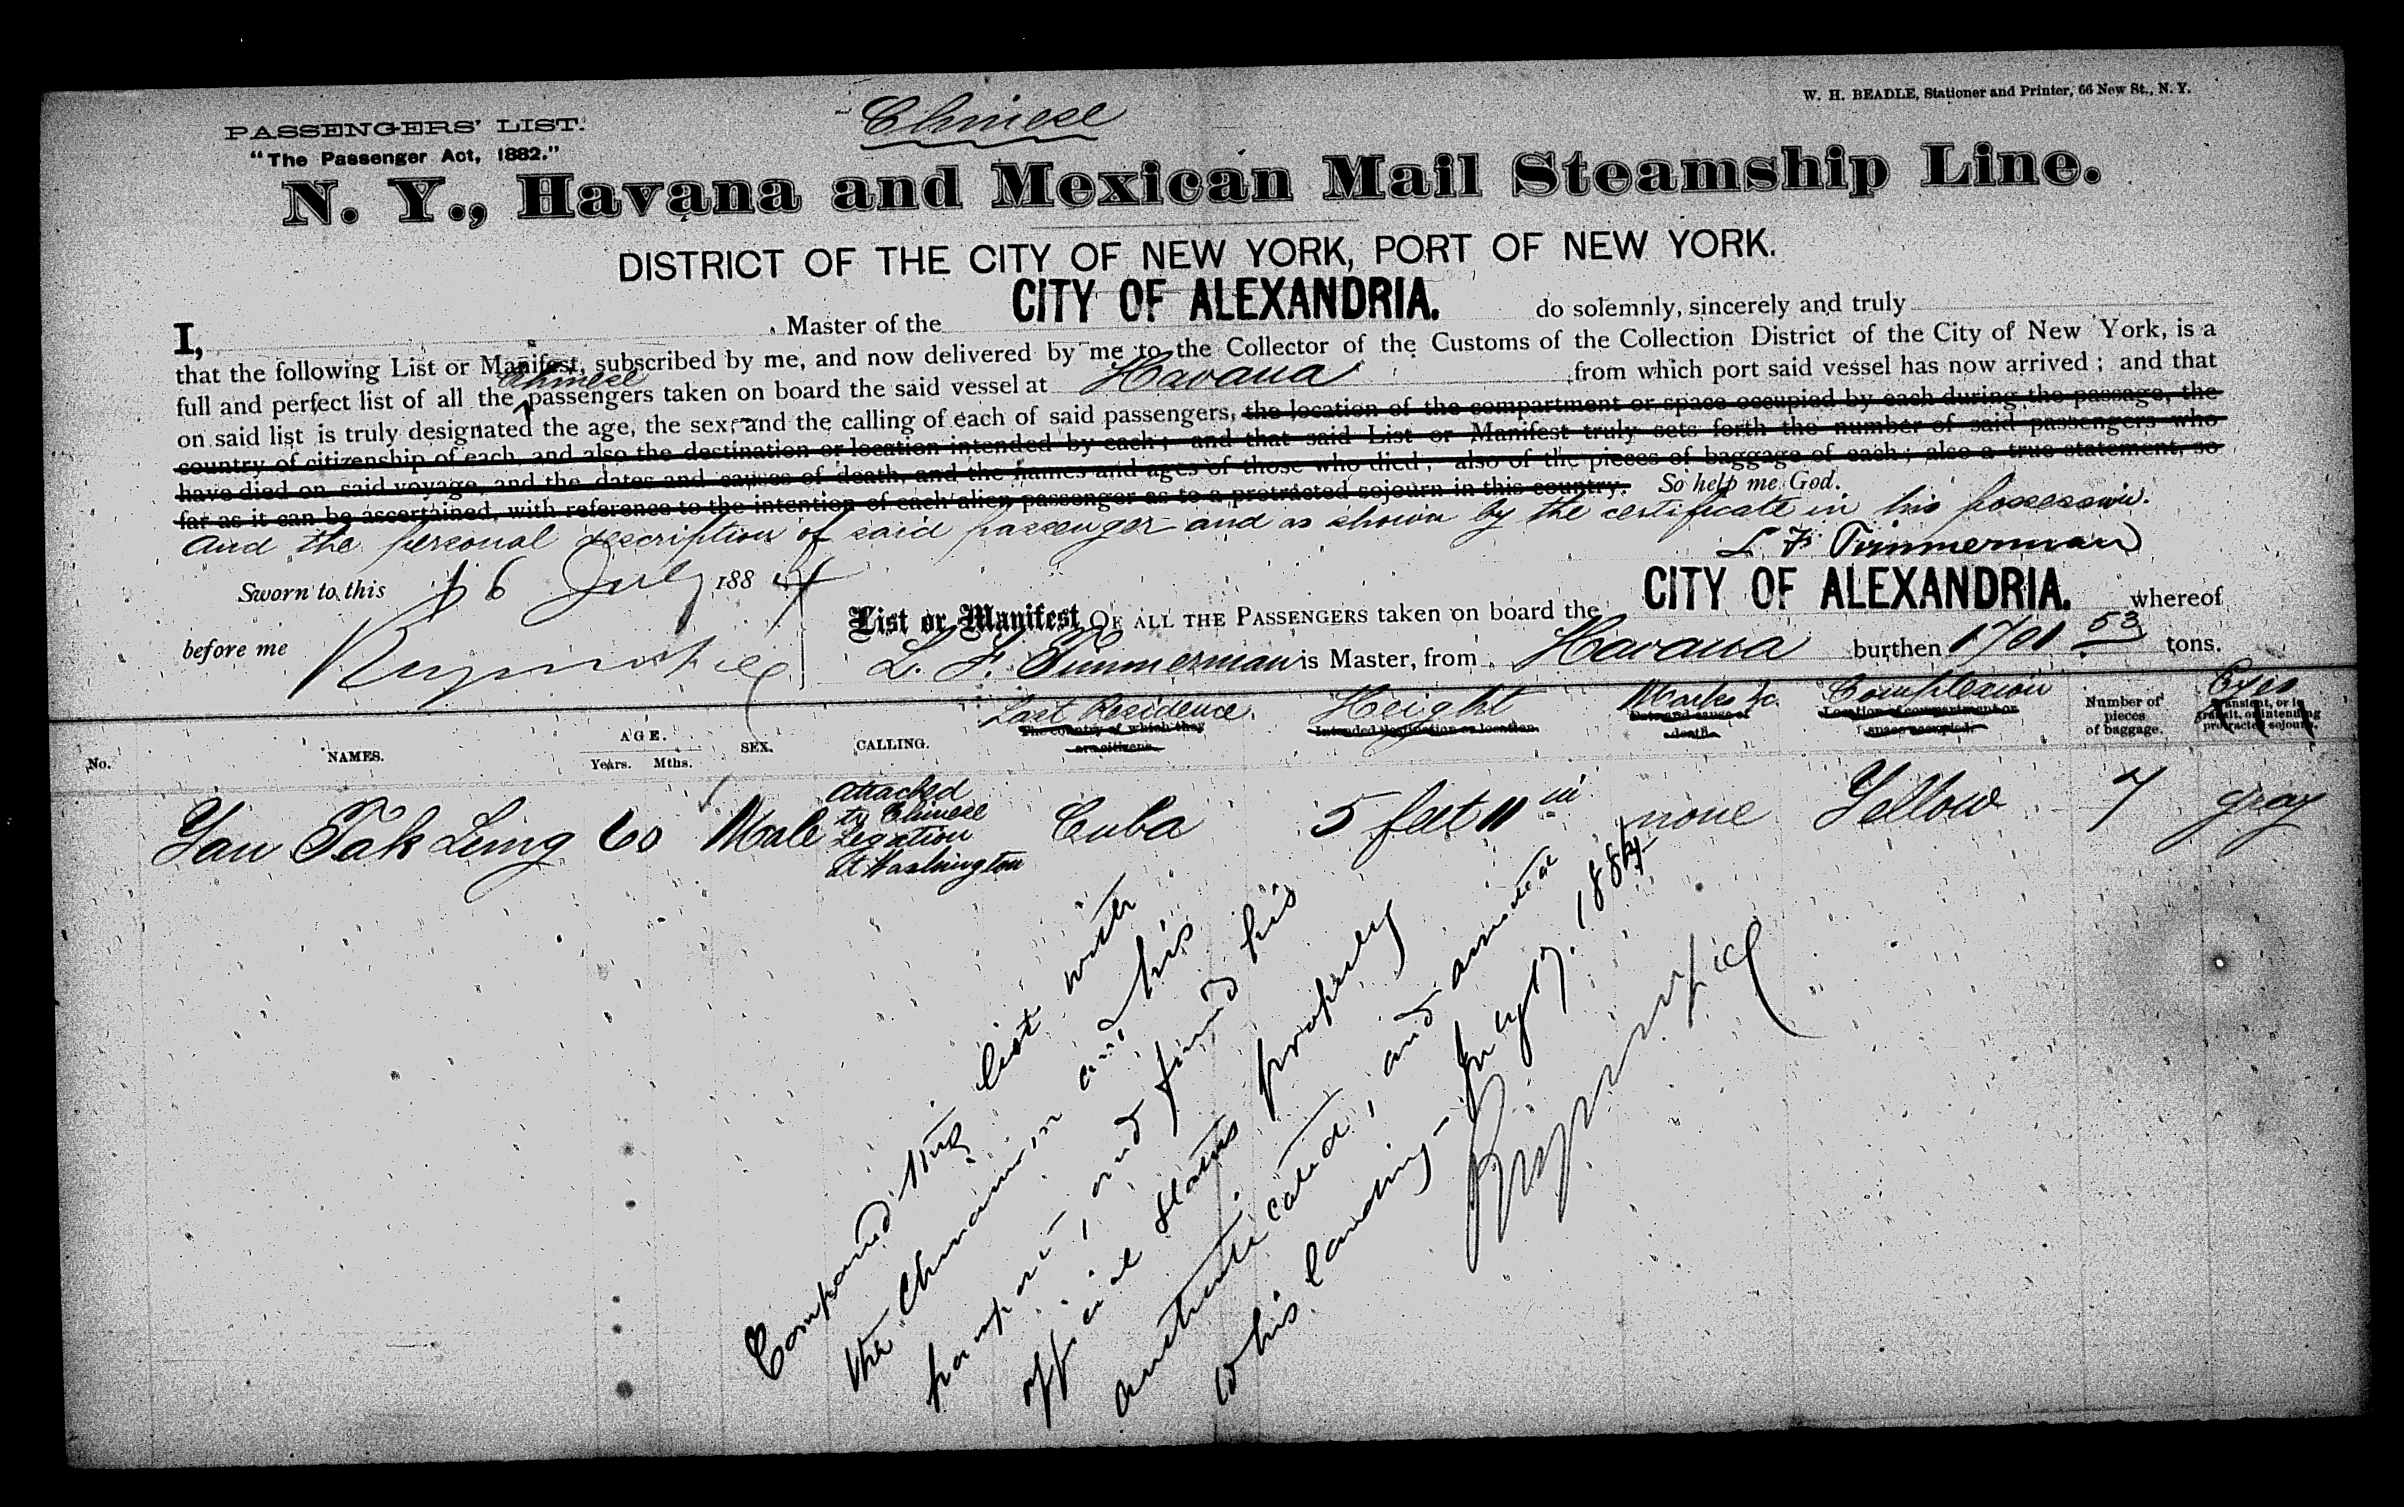 PASSENGERS' LIST.
"The Passenger Act, 1882."
Chinese
W. H. BEADLE, Stationer and Printer, 66 New St., N. Y.
N. Y., Havana and Mexican Mail Steamship Line.
DISTRICT OF THE CITY OF NEW YORK, PORT OF NEW YORK.
I, Master of the CITY OF ALEXANDRIA. do solemnly, sincerely and truly
that the following List or Manifest, subscribed by me, and now delivered by me to the Collector of the Customs of the Collection District of the City of New York, is a
full and perfect list of all the Chinese passengers taken on board the said vessel at Havana from which port said vessel has now arrived; and that
on said list is truly designated the age, the sex, and the calling of each of said passengers, the location of the compartment or space occupied by each during the passage, the
country of citizenship of each, and also the destination or location intended by each; and that said List or Manifest truly sets forth the number of said passengers who
have died on said voyage, and the dates and causes of death, and the names and ages of those who died; also of the pieces of baggage of each; also a true statement, so
far as it can be ascertained, with reference to the intention of each alien passenger as to a protracted sojourn in this country. So help me God.
and the personal description of said passenger and as shown by the certificate in his possession.
L. F. Timmerman
Sworn to this 16 July 1884
before me
List or Manifest OF ALL THE PASSENGERS taken on board the CITY OF ALEXANDRIA. whereof
L. F. Timmerman is Master, from Havana burthen 1701 53 tons.
No. NAMES. AGE. Years. Mths. SEX. CALLING. Last Residence. The country of which they are citizens. Height Intended destination or location. Marks &c. Date and cause of death. Complexion Location of compartment or space occupied. Number of pieces of baggage. Eyes Transient, or in transit, or intending protracted sojourn.
Yau Tak Ling 60 Male attached to Chinese Legation at Washington Cuba 5 feet 11 in none Yellow 7 gray
Compared this list with
the Chinaman and his
passport, and find his
official status properly
authenticated, and
to his landing— July 17. 1884